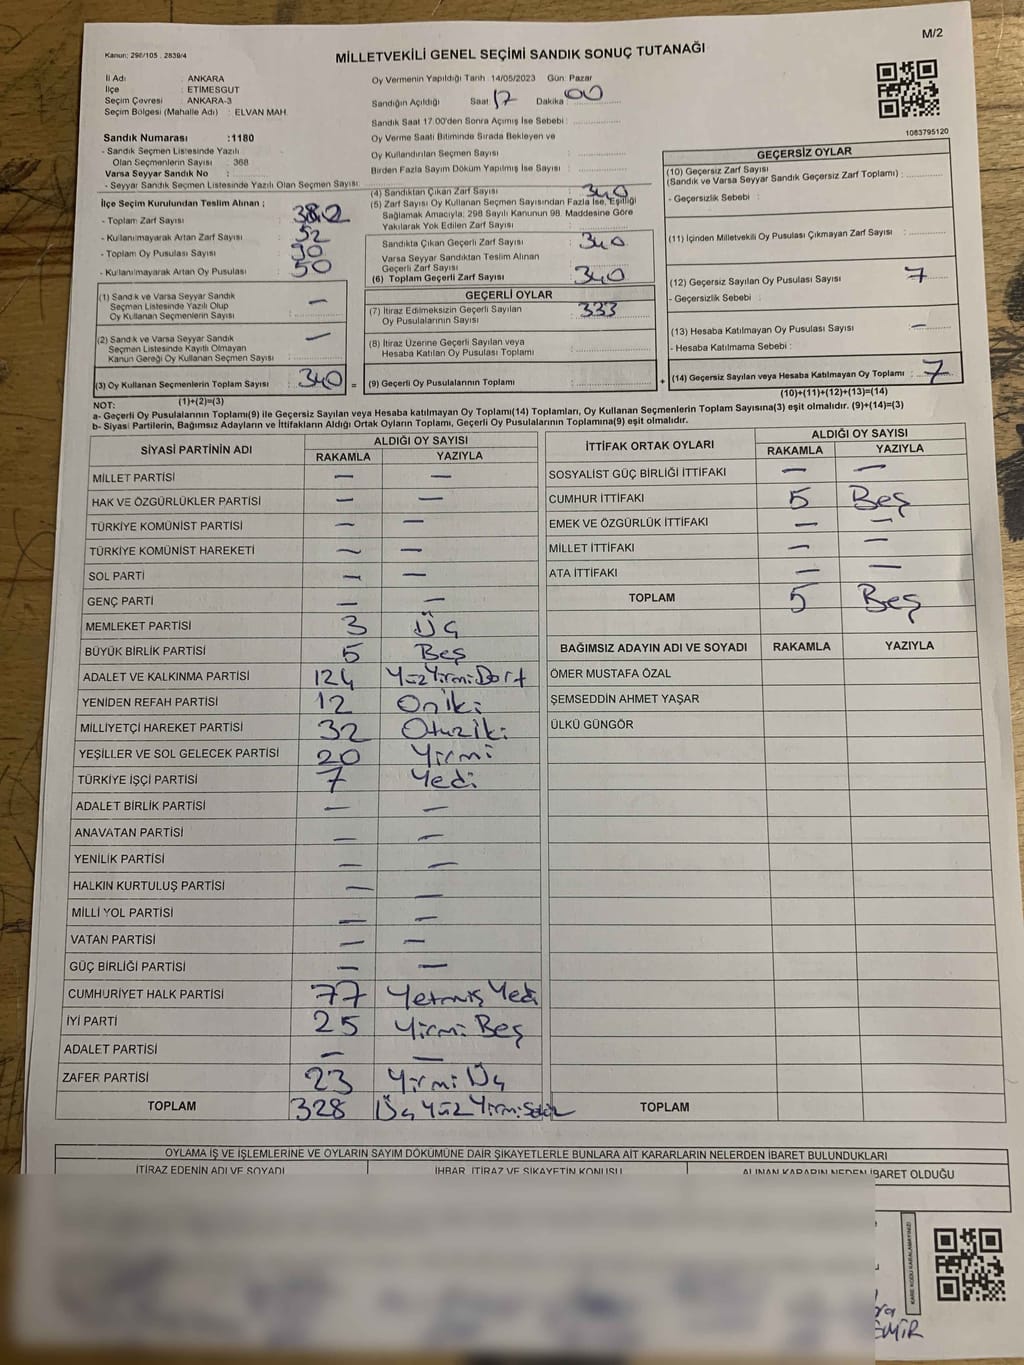 M/2
Kanun: 298/105 . 2839/4
MİLLETVEKİLİ GENEL SEÇİMİ SANDIK SONUÇ TUTANAĞI
İl Adı : ANKARA
İlçe : ETİMESGUT
Seçim Çevresi : ANKARA-3
Seçim Bölgesi (Mahalle Adı) : ELVAN MAH.
Sandık Numarası :1180
- Sandık Seçmen Listesinde Yazılı
Olan Seçmenlerin Sayısı : 368
Varsa Seyyar Sandık No :
- Seyyar Sandık Seçmen Listesinde Yazılı Olan Seçmen Sayısı:
İlçe Seçim Kurulundan Teslim Alınan ;
- Toplam Zarf Sayısı : 382
- Kullanılmayarak Artan Zarf Sayısı : 52
- Toplam Oy Pusulası Sayısı :
- Kullanılmayarak Artan Oy Pusulası : 50
(1) Sandık ve Varsa Seyyar Sandık
Seçmen Listesinde Yazılı Olup
Oy Kullanan Seçmenlerin Sayısı : —
(2) Sandık ve Varsa Seyyar Sandık
Seçmen Listesinde Kayıtlı Olmayan
Kanun Gereği Oy Kullanan Seçmen Sayısı : —
(3) Oy Kullanan Seçmenlerin Toplam Sayısı : 340 =
(1)+(2)=(3)
Oy Vermenin Yapıldığı Tarih : 14/05/2023 Gün: Pazar
Sandığın Açıldığı Saat 17 Dakika 00
Sandık Saat 17:00'den Sonra Açımış İse Sebebi :
Oy Verme Saati Bitiminde Sırada Bekleyen ve
Oy Kullandırılan Seçmen Sayısı :
Birden Fazla Sayım Döküm Yapılmış İse Sayısı :
(4) Sandıktan Çıkan Zarf Sayısı : 340
(5) Zarf Sayısı Oy Kullanan Seçmen Sayısından Fazla İse, Eşitliği
Sağlamak Amacıyla; 298 Sayılı Kanunun 98. Maddesine Göre
Yakılarak Yok Edilen Zarf Sayısı :
Sandıkta Çıkan Geçerli Zarf Sayısı : 340
Varsa Seyyar Sandıktan Teslim Alınan
Geçerli Zarf Sayısı :
(6) Toplam Geçerli Zarf Sayısı : 340
GEÇERLİ OYLAR
(7) İtiraz Edilmeksizin Geçerli Sayılan
Oy Pusulalarının Sayısı : 333
(8) İtiraz Üzerine Geçerli Sayılan veya
Hesaba Katılan Oy Pusulası Toplamı :
(9) Geçerli Oy Pusulalarının Toplamı : +
1083795120
GEÇERSİZ OYLAR
(10) Geçersiz Zarf Sayısı
(Sandık ve Varsa Seyyar Sandık Geçersiz Zarf Toplamı) :
- Geçersizlik Sebebi :
(11) İçinden Milletvekili Oy Pusulası Çıkmayan Zarf Sayısı :
(12) Geçersiz Sayılan Oy Pusulası Sayısı : 7
- Geçersizlik Sebebi :
(13) Hesaba Katılmayan Oy Pusulası Sayısı : —
- Hesaba Katılmama Sebebi :
(14) Geçersiz Sayılan veya Hesaba Katılmayan Oy Toplamı : 7
(10)+(11)+(12)+(13)=(14)
NOT:
a- Geçerli Oy Pusulalarının Toplamı(9) ile Geçersiz Sayılan veya Hesaba katılmayan Oy Toplamı(14) Toplamları, Oy Kullanan Seçmenlerin Toplam Sayısına(3) eşit olmalıdır. (9)+(14)=(3)
b- Siyasi Partilerin, Bağımsız Adayların ve İttifakların Aldığı Ortak Oyların Toplamı, Geçerli Oy Pusulalarının Toplamına(9) eşit olmalıdır.
SİYASİ PARTİNİN ADI ALDIĞI OY SAYISI
RAKAMLA YAZIYLA
MİLLET PARTİSİ — —
HAK VE ÖZGÜRLÜKLER PARTİSİ — —
TÜRKİYE KOMÜNİST PARTİSİ — —
TÜRKİYE KOMÜNİST HAREKETİ — —
SOL PARTİ — —
GENÇ PARTİ — —
MEMLEKET PARTİSİ 3 Üç
BÜYÜK BİRLİK PARTİSİ 5 Beş
ADALET VE KALKINMA PARTİSİ 124 YüzYirmiDört
YENİDEN REFAH PARTİSİ 12 Oniki
MİLLİYETÇİ HAREKET PARTİSİ 32 Otuziki
YEŞİLLER VE SOL GELECEK PARTİSİ 20 Yirmi
TÜRKİYE İŞÇİ PARTİSİ 7 Yedi
ADALET BİRLİK PARTİSİ — —
ANAVATAN PARTİSİ — —
YENİLİK PARTİSİ — —
HALKIN KURTULUŞ PARTİSİ — —
MİLLİ YOL PARTİSİ — —
VATAN PARTİSİ — —
GÜÇ BİRLİĞİ PARTİSİ — —
CUMHURİYET HALK PARTİSİ 77 Yetmiş Yedi
İYİ PARTİ 25 Yirmi Beş
ADALET PARTİSİ — —
ZAFER PARTİSİ 23 Yirmi Üç
TOPLAM 328 Üç Yüz Yirmi Sekiz
İTTİFAK ORTAK OYLARI ALDIĞI OY SAYISI
RAKAMLA YAZIYLA
SOSYALİST GÜÇ BİRLİĞİ İTTİFAKI — —
CUMHUR İTTİFAKI 5 Beş
EMEK VE ÖZGÜRLÜK İTTİFAKI — —
MİLLET İTTİFAKI — —
ATA İTTİFAKI — —
TOPLAM 5 Beş
BAĞIMSIZ ADAYIN ADI VE SOYADI RAKAMLA YAZIYLA
ÖMER MUSTAFA ÖZAL
ŞEMSEDDİN AHMET YAŞAR
ÜLKÜ GÜNGÖR
TOPLAM
OYLAMA İŞ VE İŞLEMLERİNE VE OYLARIN SAYIM DÖKÜMÜNE DAİR ŞİKAYETLERLE BUNLARA AİT KARARLARIN NELERDEN İBARET BULUNDUKLARI
İTİRAZ EDENİN ADI VE SOYADI İHBAR, İTİRAZ VE ŞİKAYETİN KONUSU ALINAN KARARIN NEDEN İBARET OLDUĞU
KARE KODU KARALAMAYINIZ!